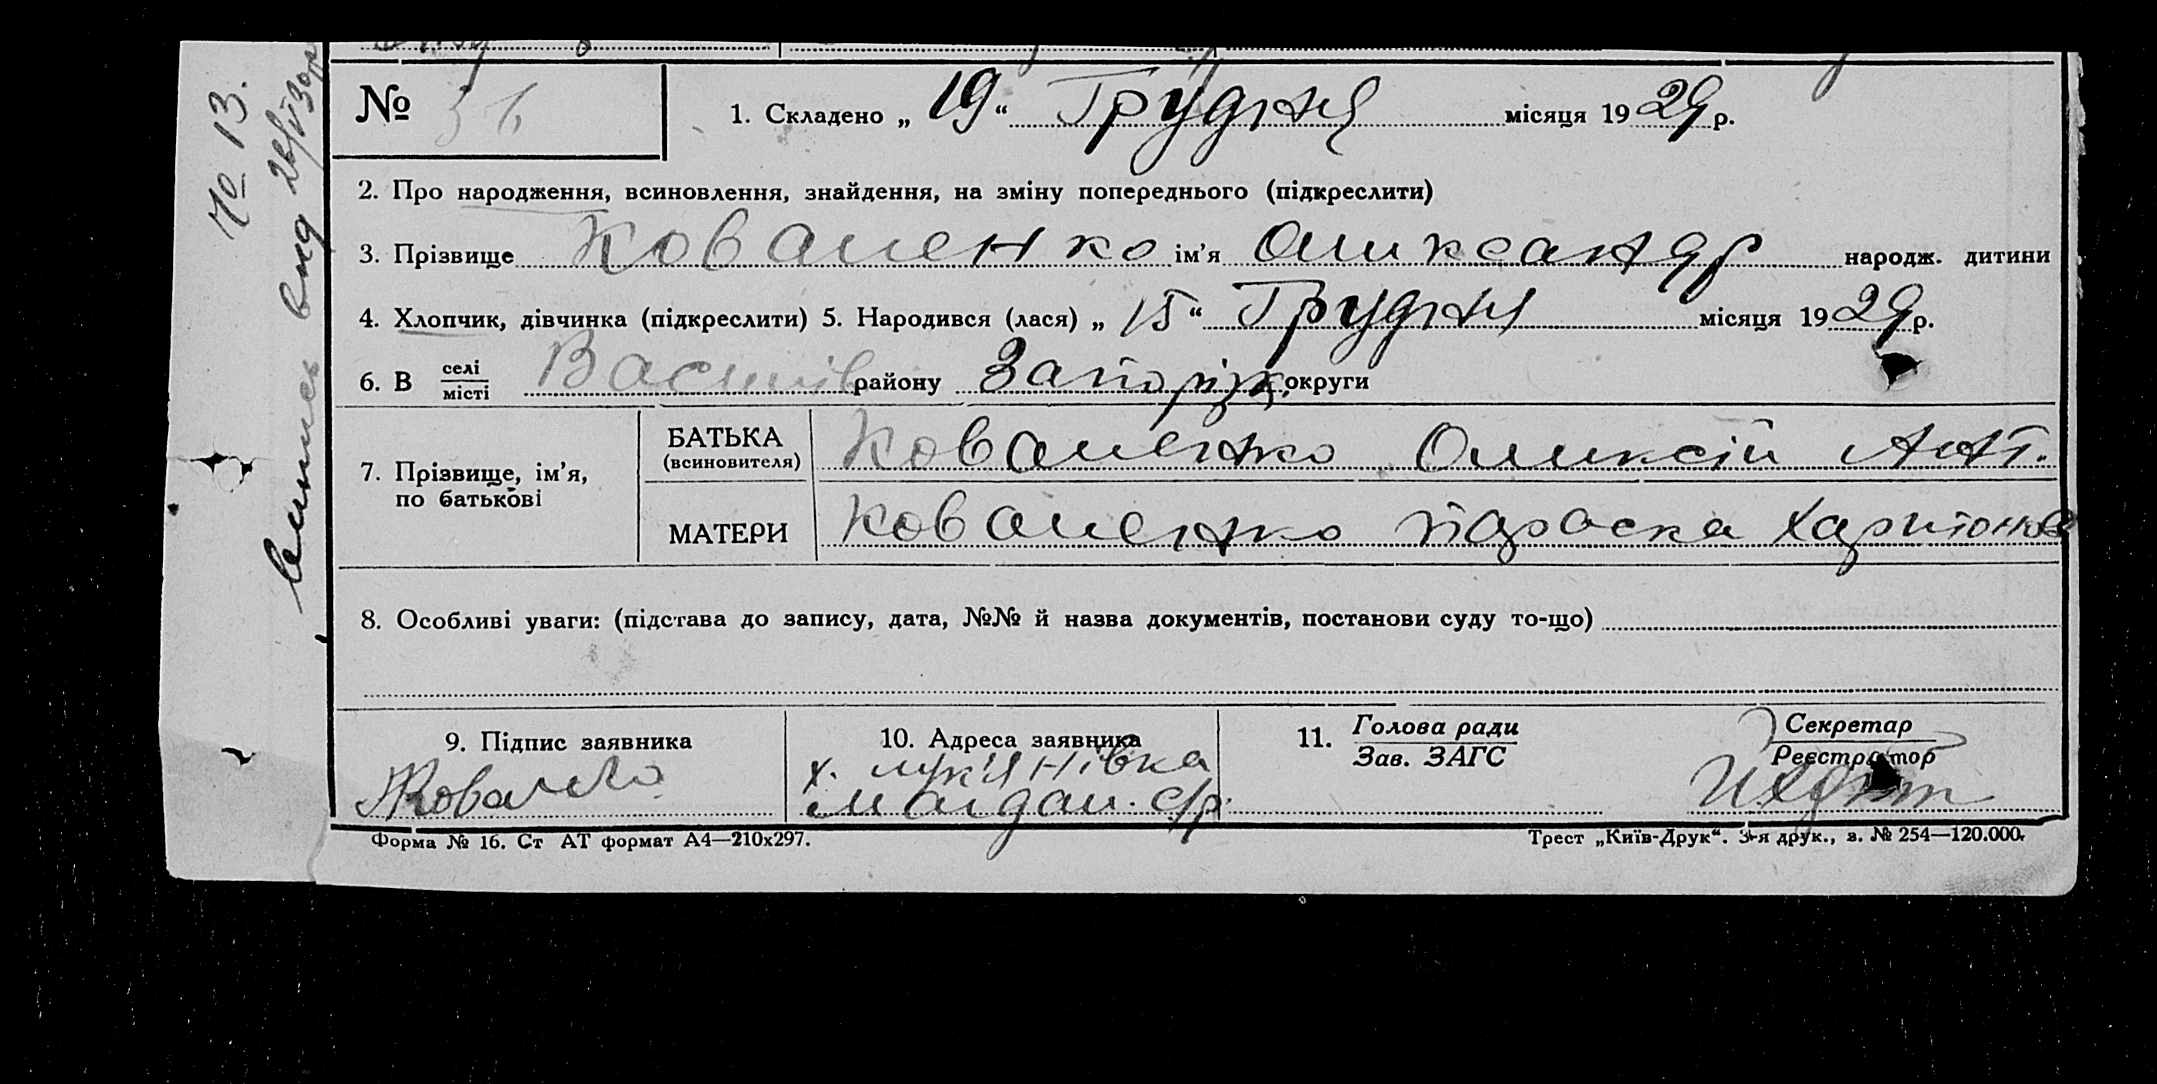 № 13.
випись вид 28/VI 30 р
№ 36
1. Складено „ 19 “ Грудня місяця 19 29 р.
2. Про народження, всиновлення, знайдення, на зміну попереднього (підкреслити)
3. Прізвище Коваленко ім’я Оликсандр народж. дитини
4. Хлопчик, дівчинка (підкреслити) 5. Народився (лася) „ 15 “ Грудня місяця 19 29 р.
6. В селі/місті Василів району Запоріж. округи
7. Прізвище, ім’я, по батькові
БАТЬКА (всиновителя) Коваленко Оликсій Ант.
МАТЕРИ Коваленко Параска Харитонов
8. Особливі уваги: (підстава до запису, дата, №№ й назва документів, постанови суду то-що)
9. Підпис заявника 10. Адреса заявника 11. Голова ради/Зав. ЗАГС Секретар/Реєстратор
х. Лук'янівка
Майдан. с/р.
Форма № 16. Ст АТ формат А4—210х297. Трест „Київ-Друк“. 3-я друк., з. № 254—120.000.